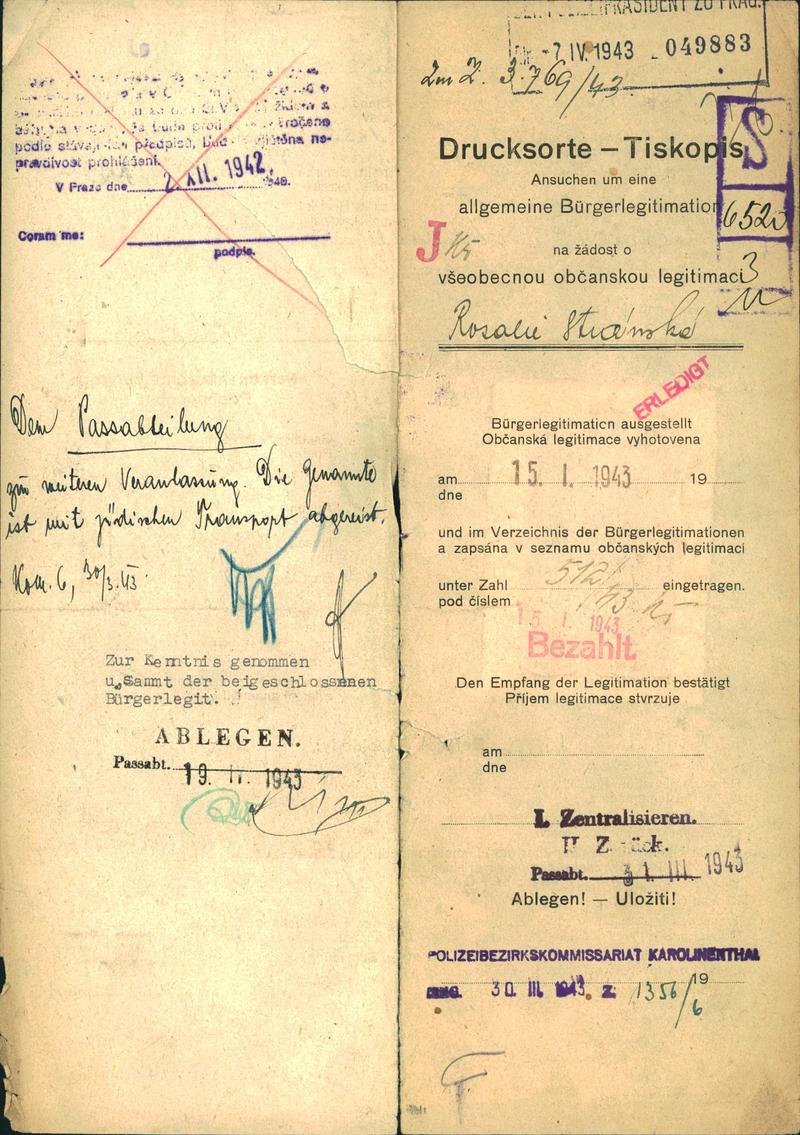 pravdivost prohlášení.
V Praze dne 2 XII. 1942.
Coram me:
podpis.
Dem Passabteilung
zur weiteren Veranlassung. Die Genannte
ist mit jüdischen Transport abgereist.
Kom. 6, 30/3. 43.
Zur Kenntnis genommen
u. Sammt der beigeschlossenen
Bürgerlegit.
ABLEGEN.
Passabt. 19. IV. 1943
7. IV. 1943 049883
3769/43
Drucksorte – Tiskopis
S
Ansuchen um eine
allgemeine Bürgerlegitimation
6520
J
na žádost o
všeobecnou občanskou legitimaci
3
Rosalie Stránská
ERLEDIGT
Bürgerlegitimation ausgestellt
Občanská legitimace vyhotovena
am 15. I. 1943 19
dne
und im Verzeichnis der Bürgerlegitimationen
a zapsána v seznamu občanských legitimací
unter Zahl 512/ eingetragen.
pod číslem
15. I. 1943
Bezahlt
Den Empfang der Legitimation bestätigt
Příjem legitimace stvrzuje
am
dne
I. Zentralisieren.
Passabt. 31. III. 1943
Ablegen! — Uložiti!
POLIZEIBEZIRKSKOMMISSARIAT KAROLINENTHAL
30. III. 1943. Z. 1356/6 19